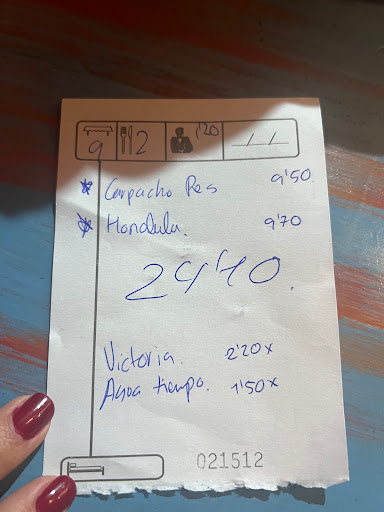 9 2 1'20 / /
Carpacho Res 9'50
Hondula. 9'70
24'10.
Victoria. 2'20x
Agua tiempo. 1'50x
021512